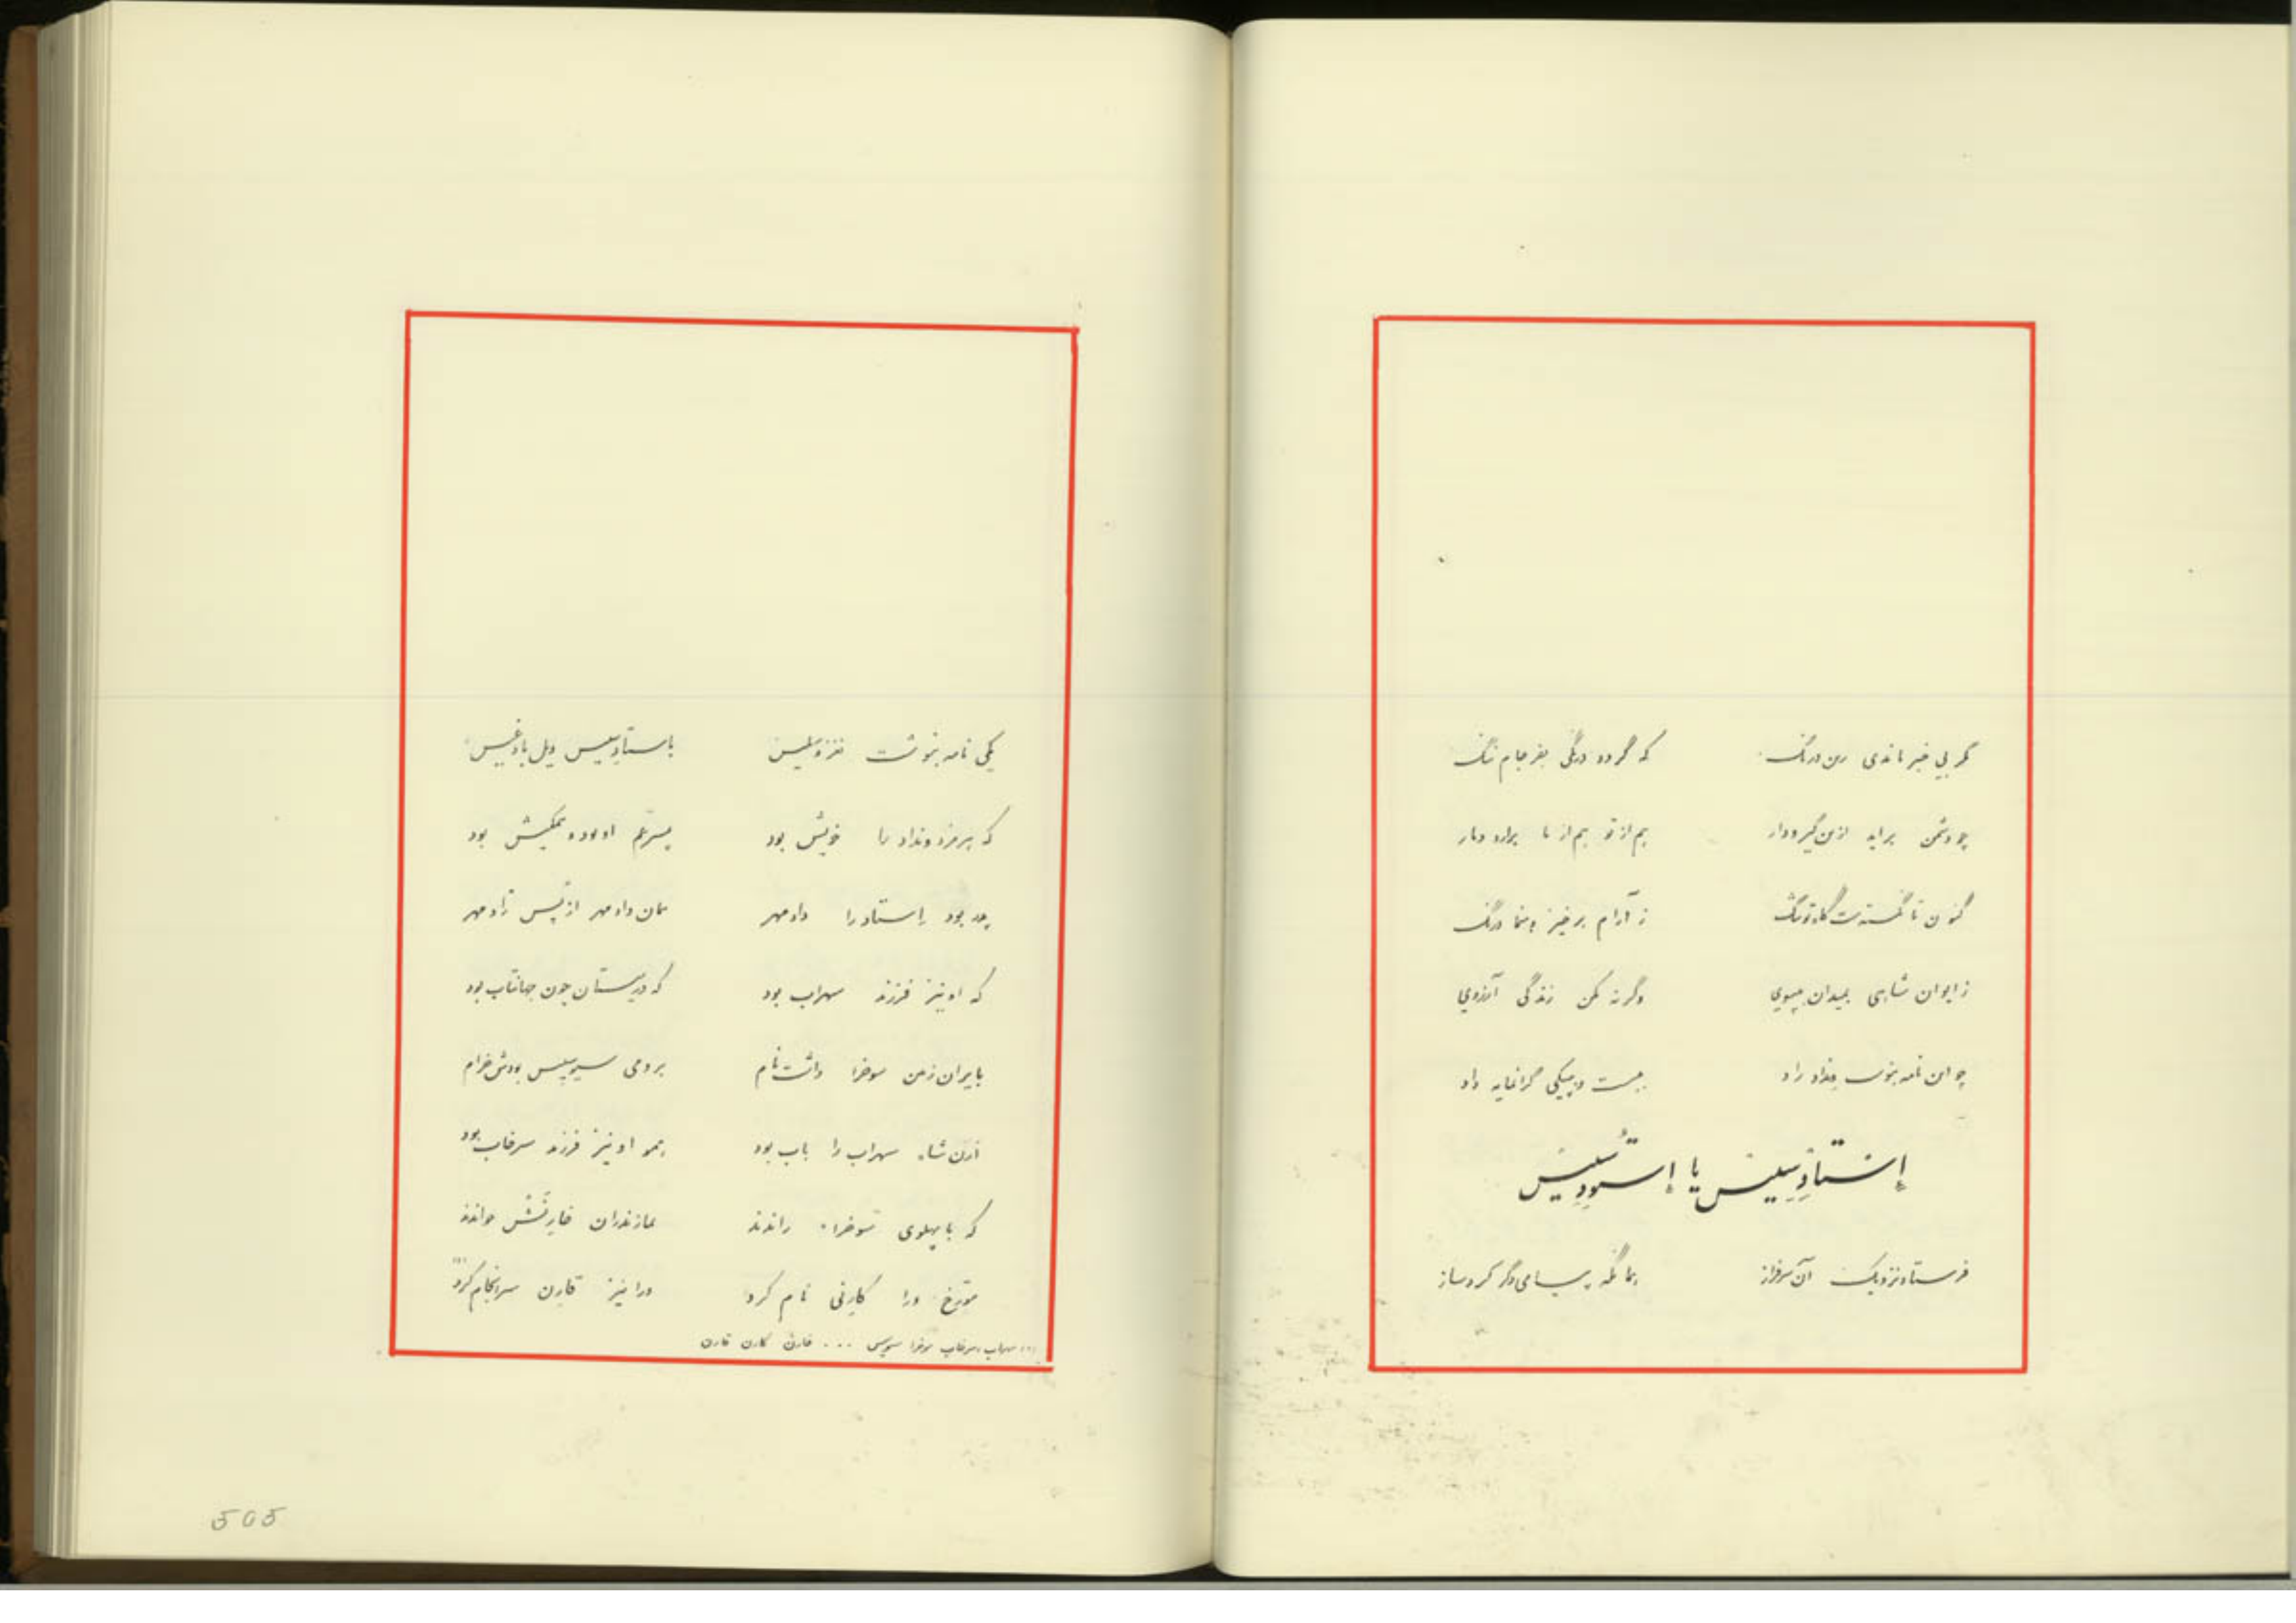 گر بی خبر ماندی زین درنگ که گردد درنگی بفرجام ننگ
چو دشمن برآید ازین گیرودار هم از تو هم از ما برآرد دمار
کنون تا گسسته
ز آرام برخیز و منما درنگ
ز ایوان شاهی بمیدان بپوی وگرنه مکن زندگی آرزوی
چو این نامه بنوشت ونداد راد ببست و بپیکی گرانمایه داد
اِستاذِسیس یا اِستودِسیس
فرستاد نزدیک آن سرفراز بهانگه پیامی دگر کرد ساز
یکی نامه بنوشت نغز و سلیس باستادسیس یل بادغیس
که هرمزد ونداد را خویش بود پسرعم او بود و همکیش بود
پدر بود استاد را دادمهر همان دادمهر از پس زادمهر
که او نیز فرزند سهراب بود که در سیستان چون جهانتاب بود
بایران زمین سوخرا داشت نام برومی سیوسیس بودش خرام
ازین شاه سهراب را باب بود همو او نیز فرزند سرخاب بود
که با پهلوی سوخرا راندند بمازندران قارنش خواندند
مورخ ورا کارنی نام کرد ورا نیز قارن سرانجام کرد
سهراب سرخاب سوخرا سیوسیس ... قارن کارن قارن
505